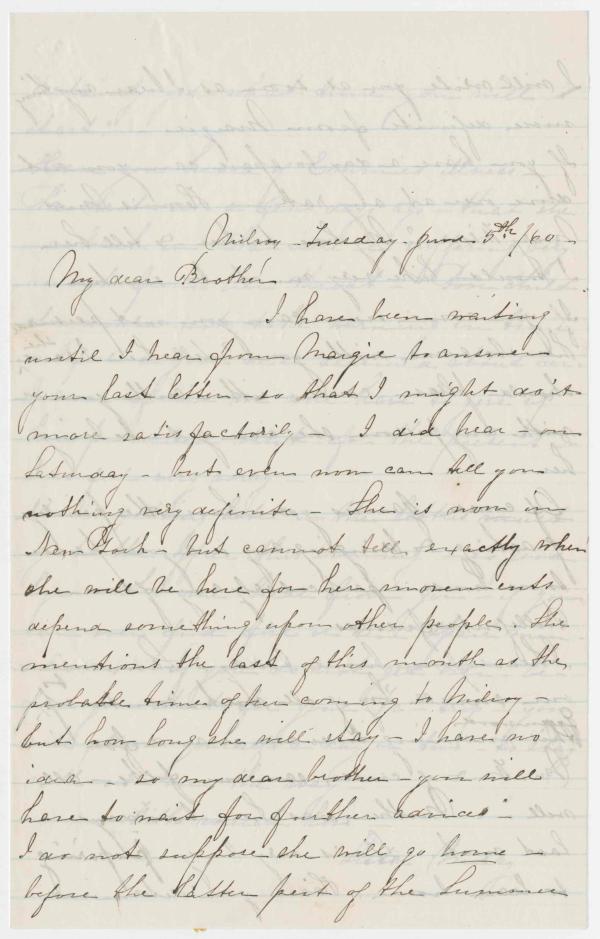 Milroy - Tuesday - June 5th /60 -
My dear Brother
I have been waiting
until I hear from Margie to answer
your last letter - so that I might do it
more satisfactorily - I did hear - on
Saturday - but even now can tell you
nothing very definite - She is now in
New York - but cannot tell exactly when
she will be here for her movements
depend something upon other people. She
mentions the last of this month as the
probable time of her coming to Milroy -
but how long she will stay - I have no
idea - so my dear brother - you will
have to wait for "further advices" -
I do not suppose she will go home -
before the latter part of the Summer